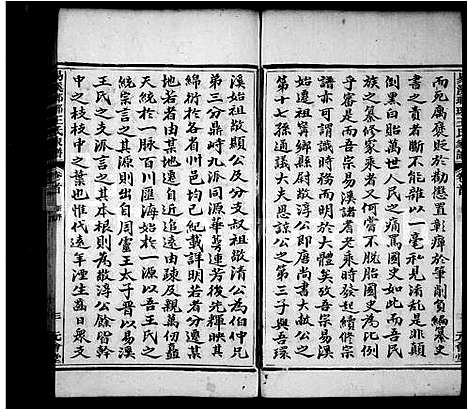 而死厲褒貶於勸懲置彰癉於筆削負編纂史
書之責者斷不能雜以一毫私見淆亂是非顛
倒黑白貽萬世人民之痛罵國史如此而吾民
族之纂修家乘者又何嘗不脫胎國史為比例
乎審是而吾宗易溪諸耆老乘時發起續修宗
譜亦可謂明於大體矣攷吾宗易溪
始遷祖寧鄉敬淳公即唐尚書大夫
第十七孫通議大夫思諒公之第三子與吾琛
溪始祖敬顯公及分支叔祖敬清公為伯仲兄
弟三分鼎峙九派同源華萼連芳後先輝映其
綿衍於各省州邑均已紀載詳明若者為某公
地若者由某地遠自近追遠由疏及親萬仞蓋
天統於一脈百川匯海始於一源以吾王氏之
統宗言之其源則出自周靈王太子晉以易溪
王氏之支派言之其本根則為敬淳公餘皆幹
中之枝枝中之葉也惟代遠年湮生齒日衆支
易溪琅琊王氏宗譜
卷首
元會堂